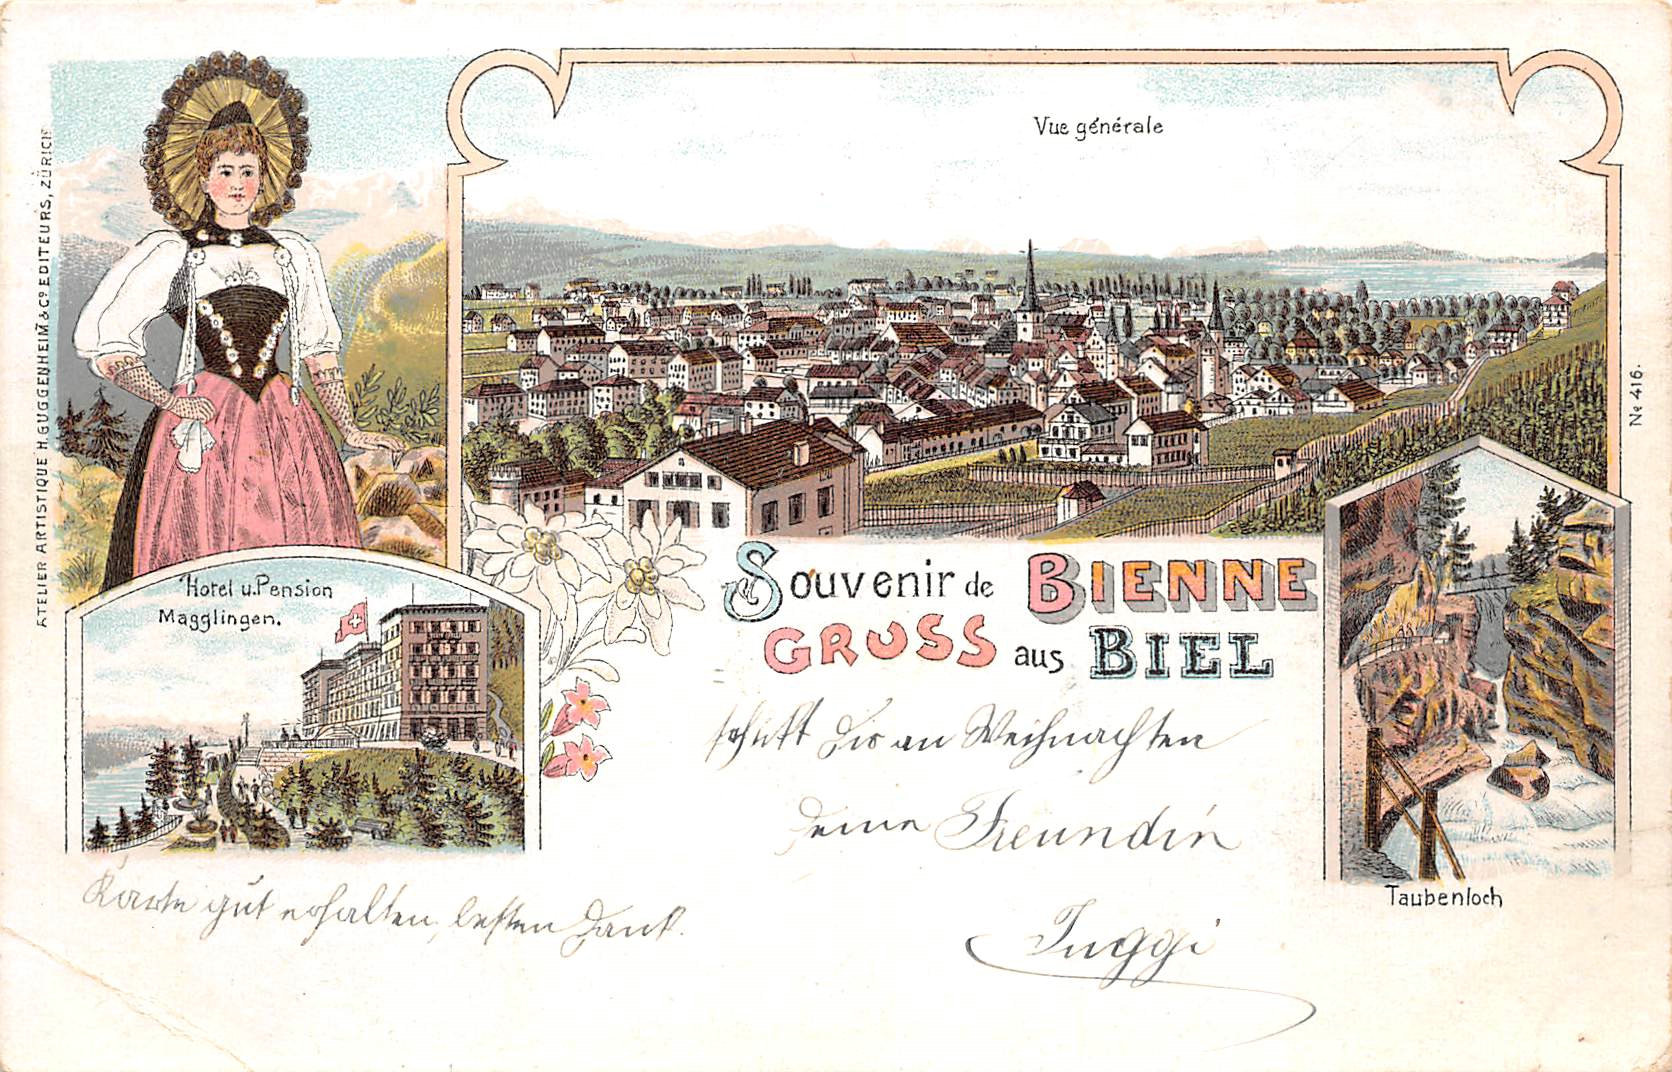 ATELIER ARTISTIQUE H. GUGGENHEIM & Co EDITEURS, ZÜRICH
Vue générale
No 416.
Hotel u. Pension
Magglingen.
Souvenir de BIENNE
GRUSS aus BIEL
schickt Dir an Weihnachten
Deine Freundin
Karte gut erhalten, besten Dank.
Taubenloch